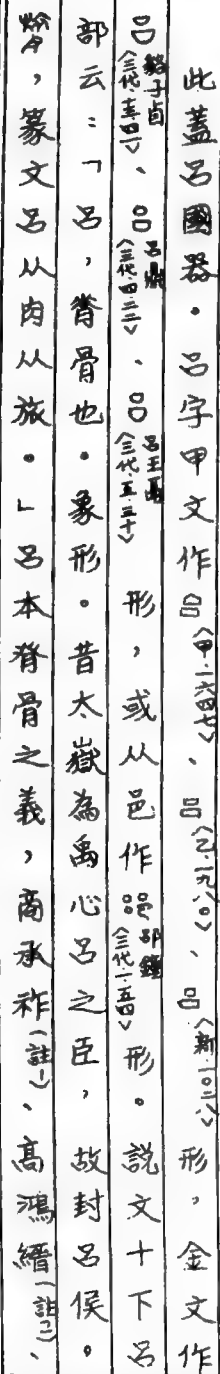 此蓋呂國器。呂字甲文作呂〈甲.一六四七〉、呂〈乙.一九八〇〉、呂〈新.一〇二八〉形，金文作
呂貉子卣〈三代.十三.四一〉、呂呂鼎〈三代.四.二二〉、呂呂王鬲〈三代.五.三十〉形，或从邑作郘鐘〈三代.一.五四〉形。説文十下呂
部云：「呂，脊骨也。象形。昔太嶽為禹心呂之臣，故封呂侯。
篆文呂从肉从旅。」呂本脊骨之義，商承祚（註一）、高鴻縉（註二）、